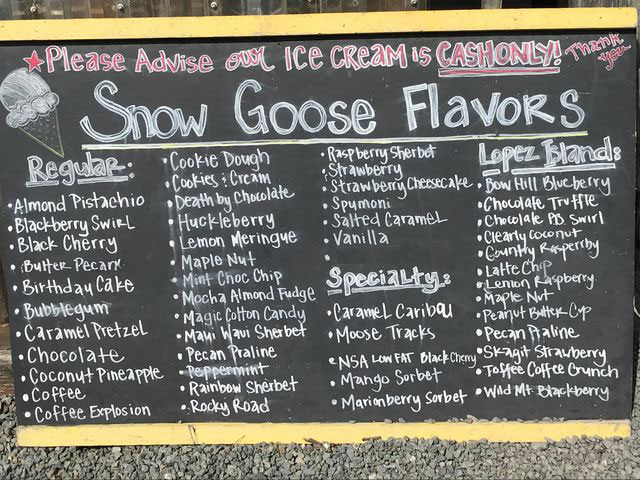 ★Please Advise our ICE CREAM is CASH ONLY! Thank you
Snow Goose Flavors
Regular:
• Almond Pistachio
• Blackberry Swirl
• Black Cherry
• Butter Pecan
• Birthday Cake
• Bubblegum
• Caramel Pretzel
• Chocolate
• Coconut Pineapple
• Coffee
• Coffee Explosion
• Cookie Dough
• Cookies & Cream
• Death by Chocolate
• Huckleberry
• Lemon Meringue
• Maple Nut
• Mint Choc Chip
• Mocha Almond Fudge
• Magic Cotton Candy
• Maui Waui Sherbet
• Pecan Praline
• Peppermint
• Rainbow Sherbet
• Rocky Road
• Raspberry Sherbet
• Strawberry
• Strawberry Cheesecake
• Spumoni
• Salted Caramel
• Vanilla
Specialty:
• Caramel Caribou
• Moose Tracks
• NSA LOW FAT Black Cherry
• Mango Sorbet
• Marionberry Sorbet
Lopez Island:
• Bow Hill Blueberry
• Chocolate Truffle
• Chocolate P.B. Swirl
• Clearly Coconut
• Country Raspberry
• Latte Chip
• Lemon Raspberry
• Maple Nut
• Peanut Butter Cup
• Pecan Praline
• Skagit Strawberry
• Toffee Coffee Crunch
• Wild Mt. Blackberry